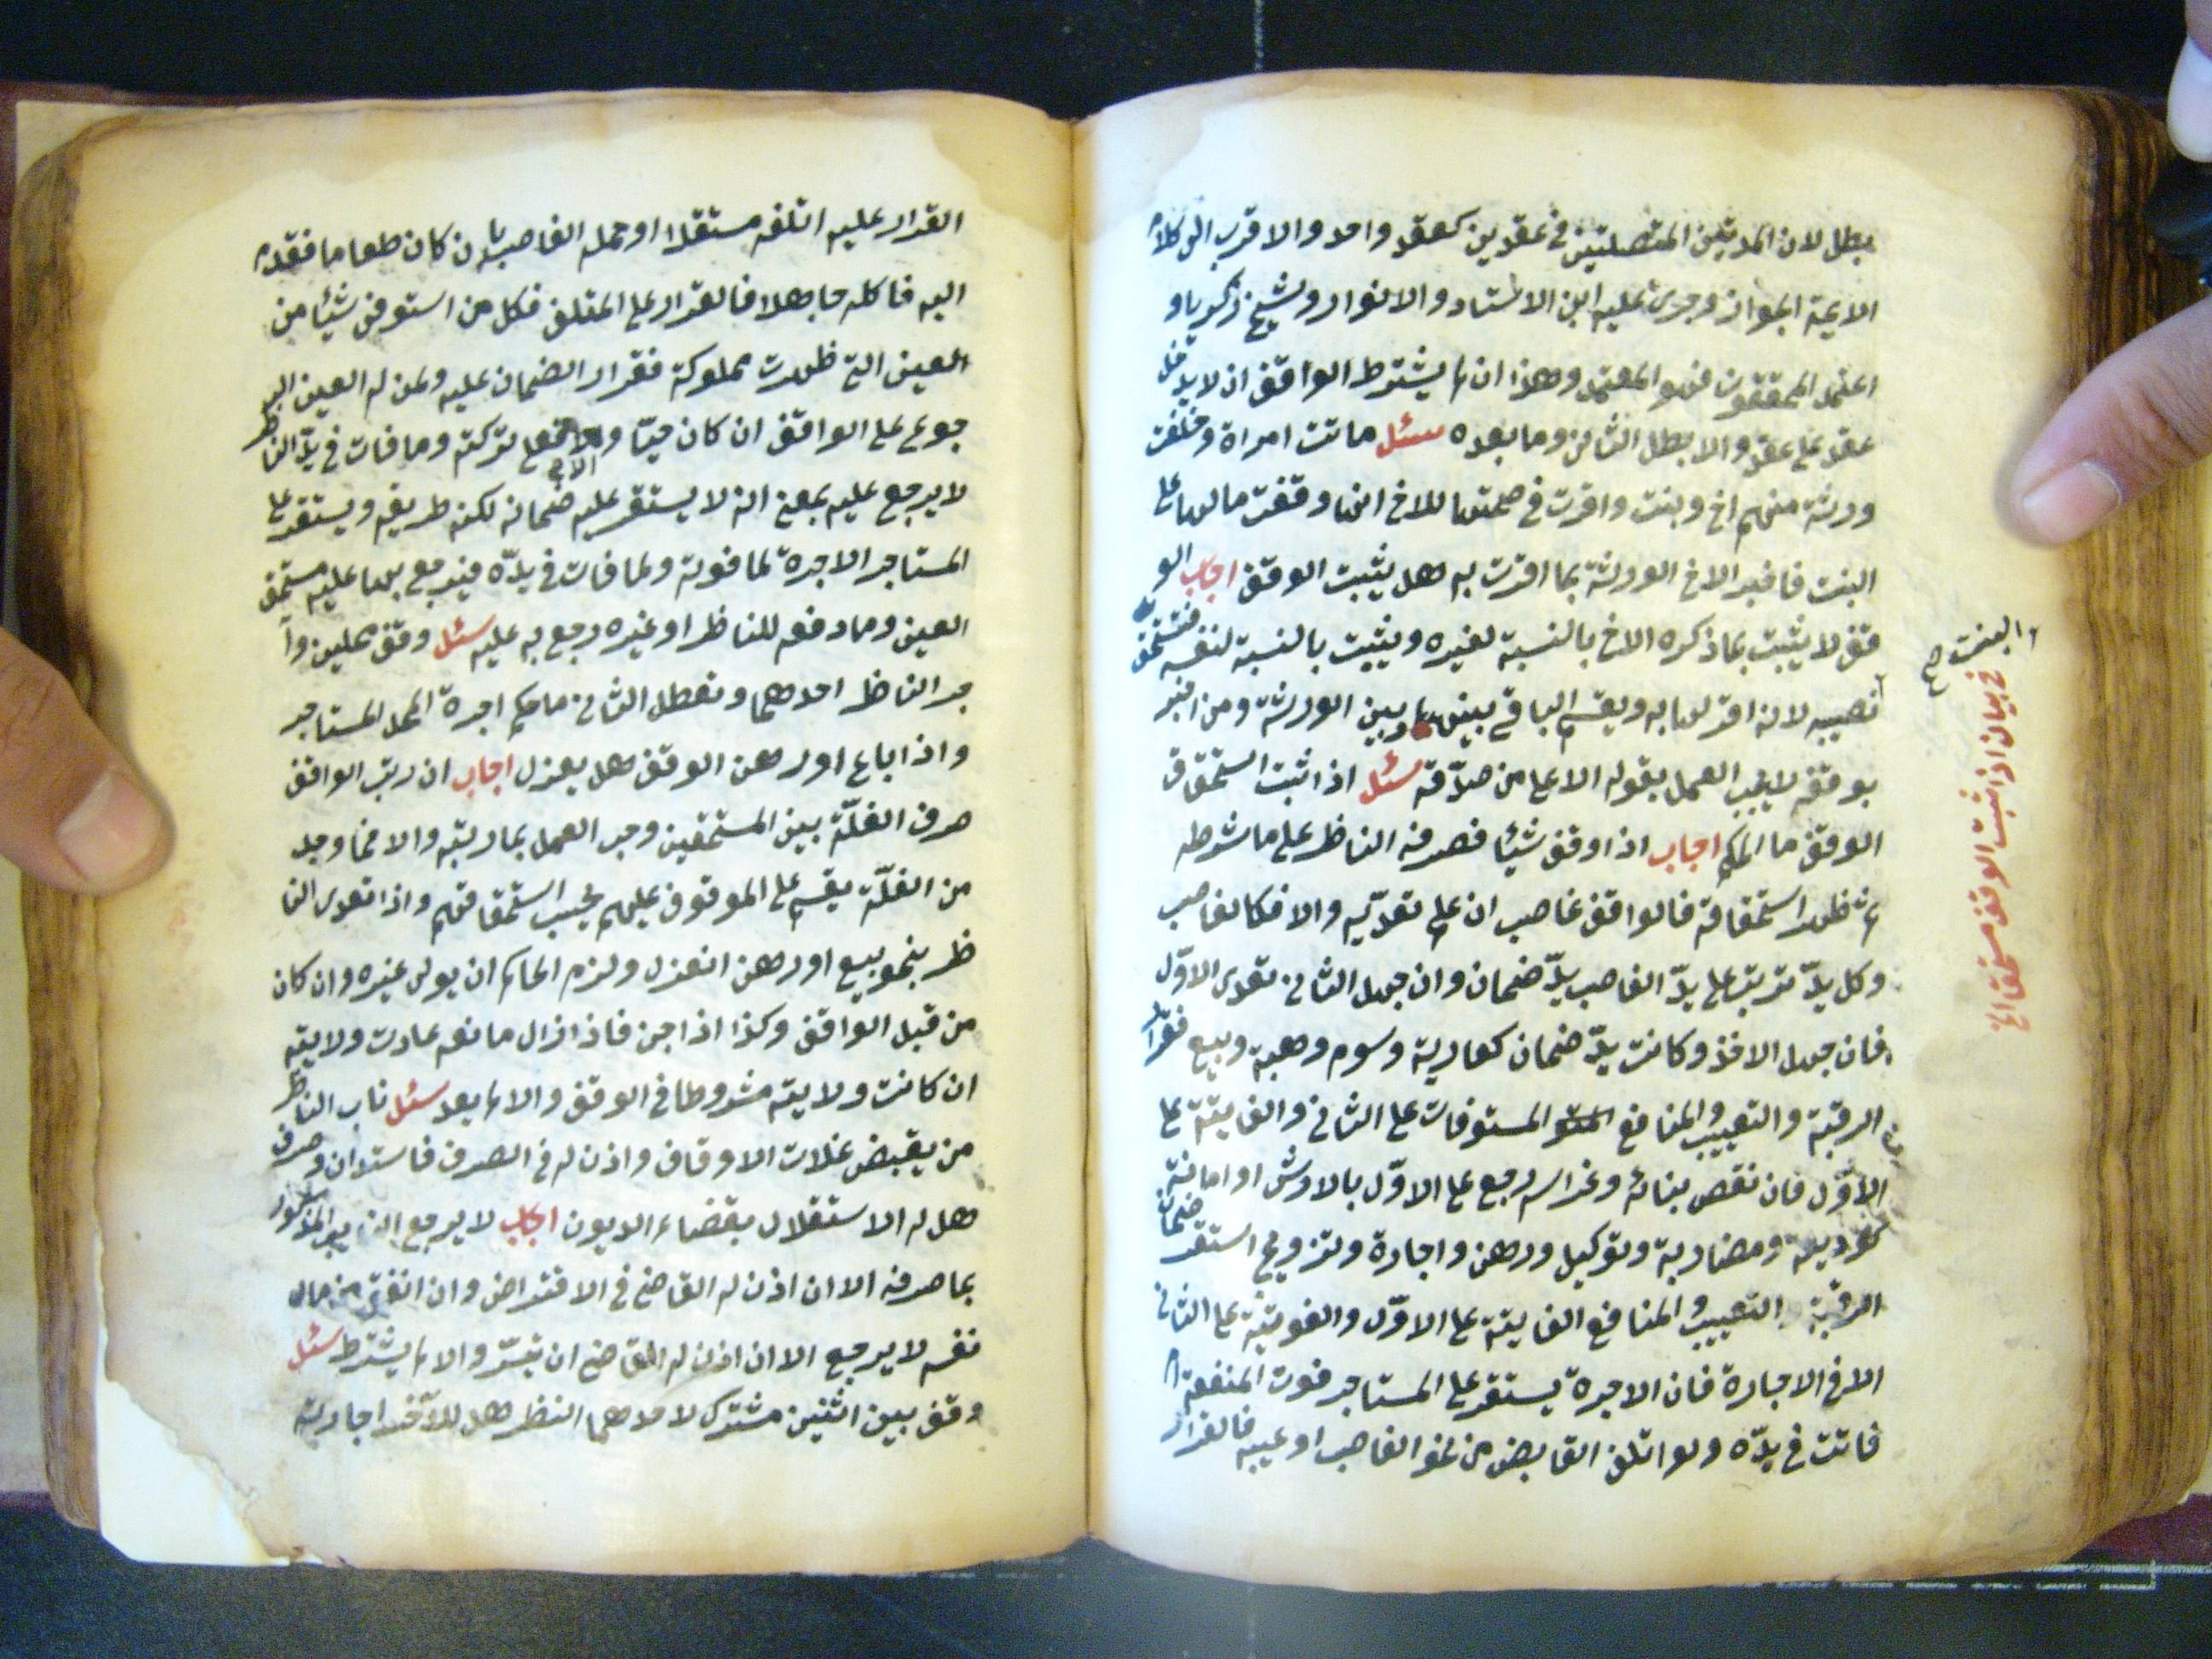 بطل لان المدتين المتصلتين في عقدين كعقد واحد والاقرب الى كلام
الايمة الجواز وجرى عليه ابن الاستاد والانوار وشيخ زكريا و
اعتمد المحققون فهو المعتمد وهذا ان لم يشترط الواقف ان لا يدخل
عقد على عقد والا بطل الثاني وما بعده سئل ماتت امراة وخلفت
ورثة منهم اخ وبنت واقرت في صحتها للاخ انها وقفت مالها على
البنت فاخبر الاخ الورثة بما اقرت به هل يثبت الوقف اجاب الو
قف لا يثبت بما ذكره الاخ بالنسبة لغيره ويثبت بالنسبة لنفسه فتستحق
البنت صح
نصيبه لانه اقر لها به ويقسم الباقي بينها وبين الورثة ومن اخبر
بوقف لا يجب العمل بقوله الا على من صدقه سئل اذا ثبت استحقاق
الوقف ما الحكم اجاب اذا وقف شيئا فصرفه الناظر على ما شرطه
ثم ظهر استحقاقه فالواقف غاصب ان علم تعديه والا فكالغاصب
وكل يد ترتب على يد الغاصب يد ضمان وان جهل الثاني تعدى الاول
فان جهل الاخذ وكانت يد ضمان كعارية وسوم وهبة وبيع فقرار
الرقبة والتعييب والمنافع المستوفات على الثاني والفايتة على
الاول فان نقص بنائه وغراسه رجع على الاول بالارش او امانة
كوديعة ومضاربة وتوكيل ورهن واجارة وتزويج استقر ضمان
الرقبة التعييب والمنافع الفايتة على الاول والفوتية على الثاني
الا في الاجارة فان الاجرة يستقر على المستاجر فوت المنفعة ام
فاتت في يده ولو اتلف القابض من نحو الغاصب او عيبه فالقرار
في بيان اذا ثبت الوقف مستحقا الخ
القرار عليه اتلفه مستقلا او حمله الغاصب بان كان طعاما فقدم
اليه فاكله جاهلا فالقرار على المتلف فكل من استوفى شيئا من
العين التي ظهرت مملوكة فقرار الضمان عليه ولمن له العين الر
جوع على الواقف ان كان حيا والا فعلى تركته وما فات في يد الناظر
لا يرجع عليه بمعنى انه لا يستقر عليه ضمانه لكنه طريقه ويستقر على
المستاجر الاجرة لما فوته ولما فات في يده فيرجع بهما عليه مستحق
العين وما دفعه للناظر او غيره رجع به عليه سئل وقف محلين وآ
جر الناظر احدهما وتعطل الثاني ما حكم اجرة المحل المستاجر
واذا باع او رهن الوقف هل يعزل اجاب ان رتب الواقف
صرف الغلة بين المستحقين وجب العمل بما رتبه والا فما وجد
من الغلة يقسم على الموقوف عليهم بحسب استحقاقهم واذا تعدى النا
ظر بنحو بيع او رهن انعزل ولزم الحاكم ان يولى غيره وان كان
من قبل الواقف وكذا اذا جن فاذا زال مانعه عادت ولايته
ان كانت ولايته مشروطا في الوقف والا لم يعد سئل ناب الناظر
من يقبض غلات الاوقاف واذن له في الصرف فاستدان وصرف
هل له الاستقلال بقضاء الديون اجاب لا يرجع النايب المذكور
بما صرفه الا ان اذن له القاضي في الاقتراض وان انفق من مال
نفسه لا يرجع الا ان اذن له القاضي ان تيسر والا لم يشترط سئل
وقف بين اثنين مشترك لاحدهما النظر هل للآخر اجارته